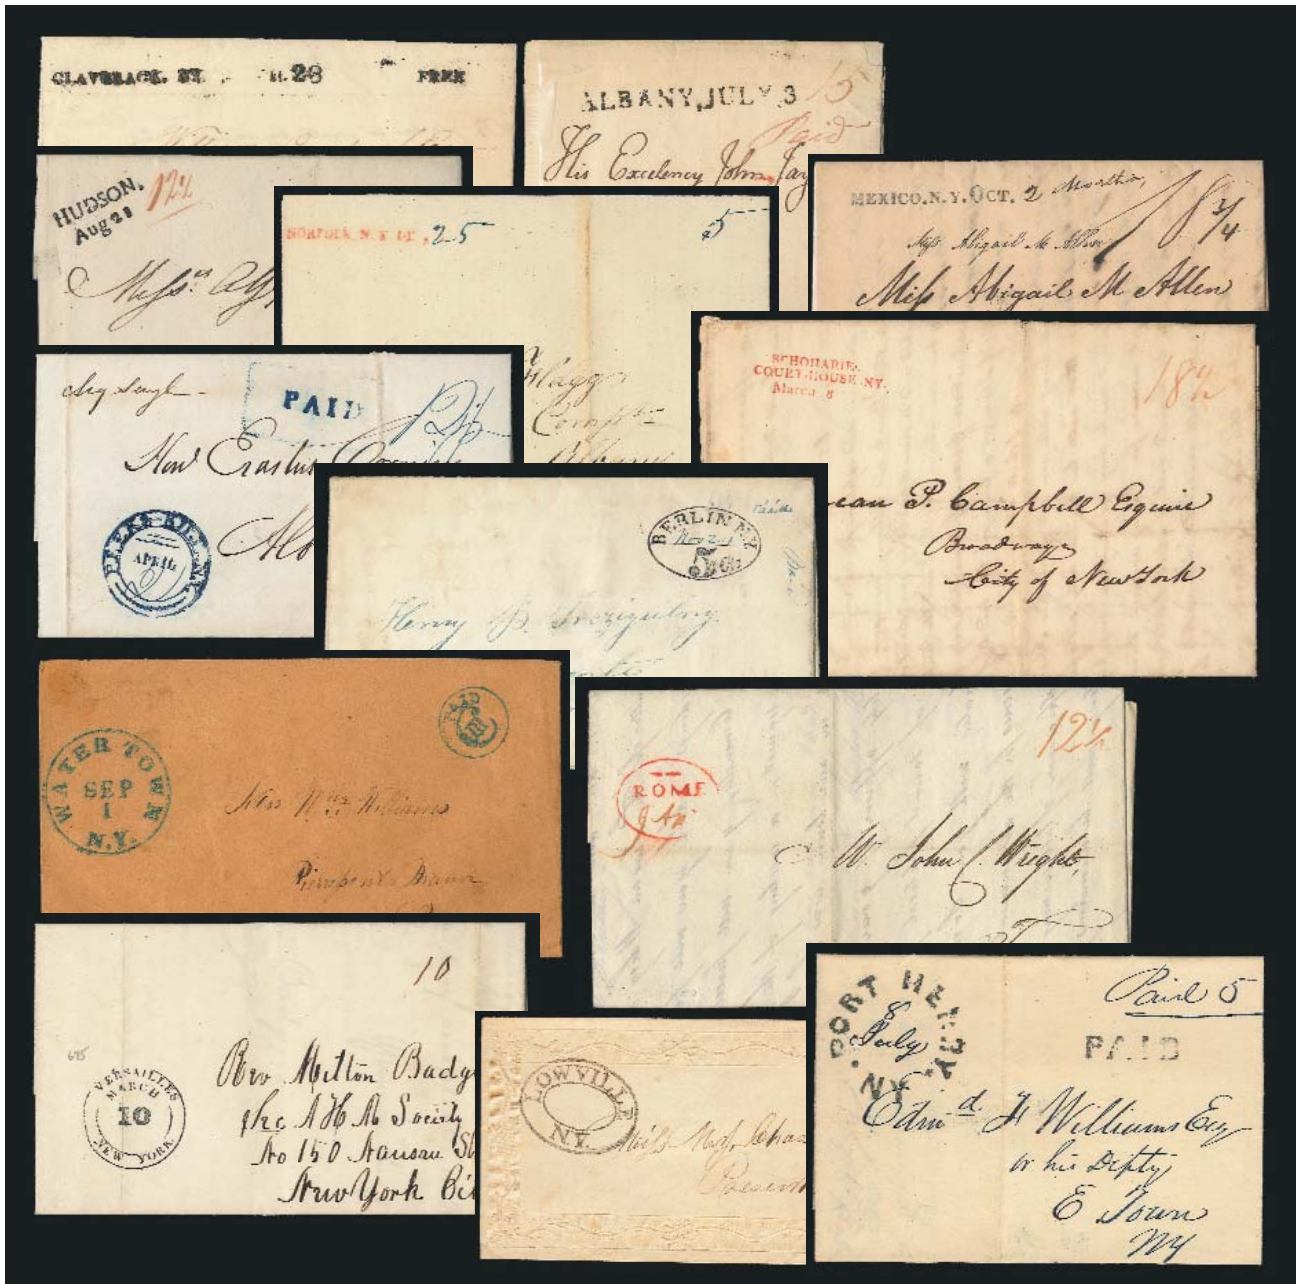 CLAVERACK. NY. 28 FREE
ALBANY, JULY 3 15
Paid
His Excelency John Jay
HUDSON,
Aug 28
12½
Mess.rs
NORFOLK N.Y. 25 5
Flagg
Compt
Albany
MEXICO. N.Y. OCT. 2 18 3/4
Miss Abigail M Allen
Miss Abigail M Allen
PAID 12½
Hon Erastus
PEEKS-KILL N.Y.
APRIL
SCHOHARIE,
COURT-HOUSE NY.
March 8
18½
can P. Campbell Esquire
Broadway
City of New York
BERLIN N.Y. Paid
Nov 2
5 Cts
Paid
Henry B.
WATER TOWN
SEP
1
N.Y.
PAID
III
Wm Williams
Pierrepont Manor
12½
ROME
W. John C. Wright,
10
645
VERSAILLES
MARCH
10
NEW YORK
Rev Milton Badg
Sec A H M Society
No 150 Nassau St
New York Cit
LOWVILLE
N.Y.
Miss
PORT HENRY
8
July
NY
Paid 5
PAID
Edmd. H Williams Esq
or his Depty
E Town
NY